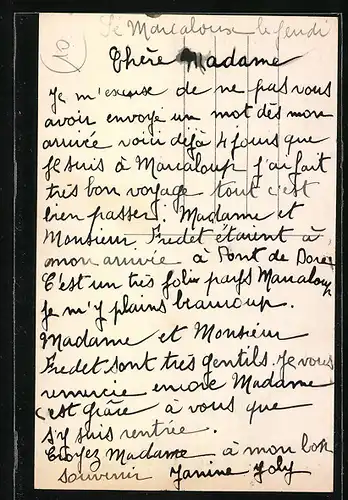 10
Le Marcaloux le jeudi
Chère Madame
Je m'excuse de ne pas vous
avoir envoyé un mot dès mon
arrivée voici déjà 4 jours que
je suis à Marcaloup j'ai fait
très bon voyage tout c'est
bien passer. Madame et
Monsieur Fredet étaient à
mon arrivée à Pont de Dore
C'est un très folie pays Marcaloup
je m'y plains beaucoup.
Madame et Monsieur
Fredet sont très gentils. Je vous
remercie encore Madame
c'est grâce à vous que
s'y suis rentrée.
Croyez Madame à mon bon
souvenir Janine Joly